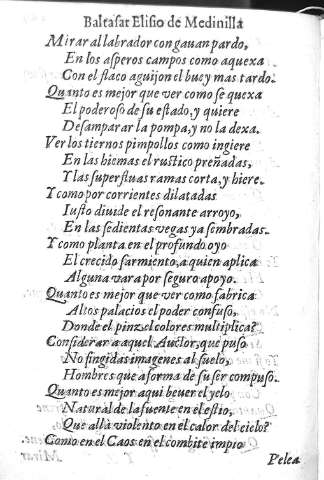 Baltasar Elisio de Medinilla
Mirar al labrador con gauan pardo,
En los asperos campos como aquexa
Con el flaco aguijon el buey mas tardo.
Quanto es mejor que ver como se quexa
El poderoso de su estado, y quiere
Desamparar la pompa, y no la dexa.
Ver los tiernos pimpollos como ingiere
En las hiemas el rustico preñadas,
Y las superfluas ramas corta, y hiere.
Y como por corrientes dilatadas
Iusto diuide el resonante arroyo,
En las sedientas vegas ya sembradas.
Y como planta en el profundo oyo
El crecido sarmiento, a quien aplica
Alguna vara por seguro apoyo.
Quanto es mejor que ver como fabrica
Altos palacios el poder confuso,
Donde el pinzel colores multiplica?
Considerar a aquel Auctor, que puso
No fingidas imagenes al suelo,
Hombres que a forma de su ser compuso.
Quanto es mejor aqui beuer el yelo
Natural de la fuente en el estio,
Que allà violento en el calor del cielo?
Como en el Caos en el combite impio
Pelea